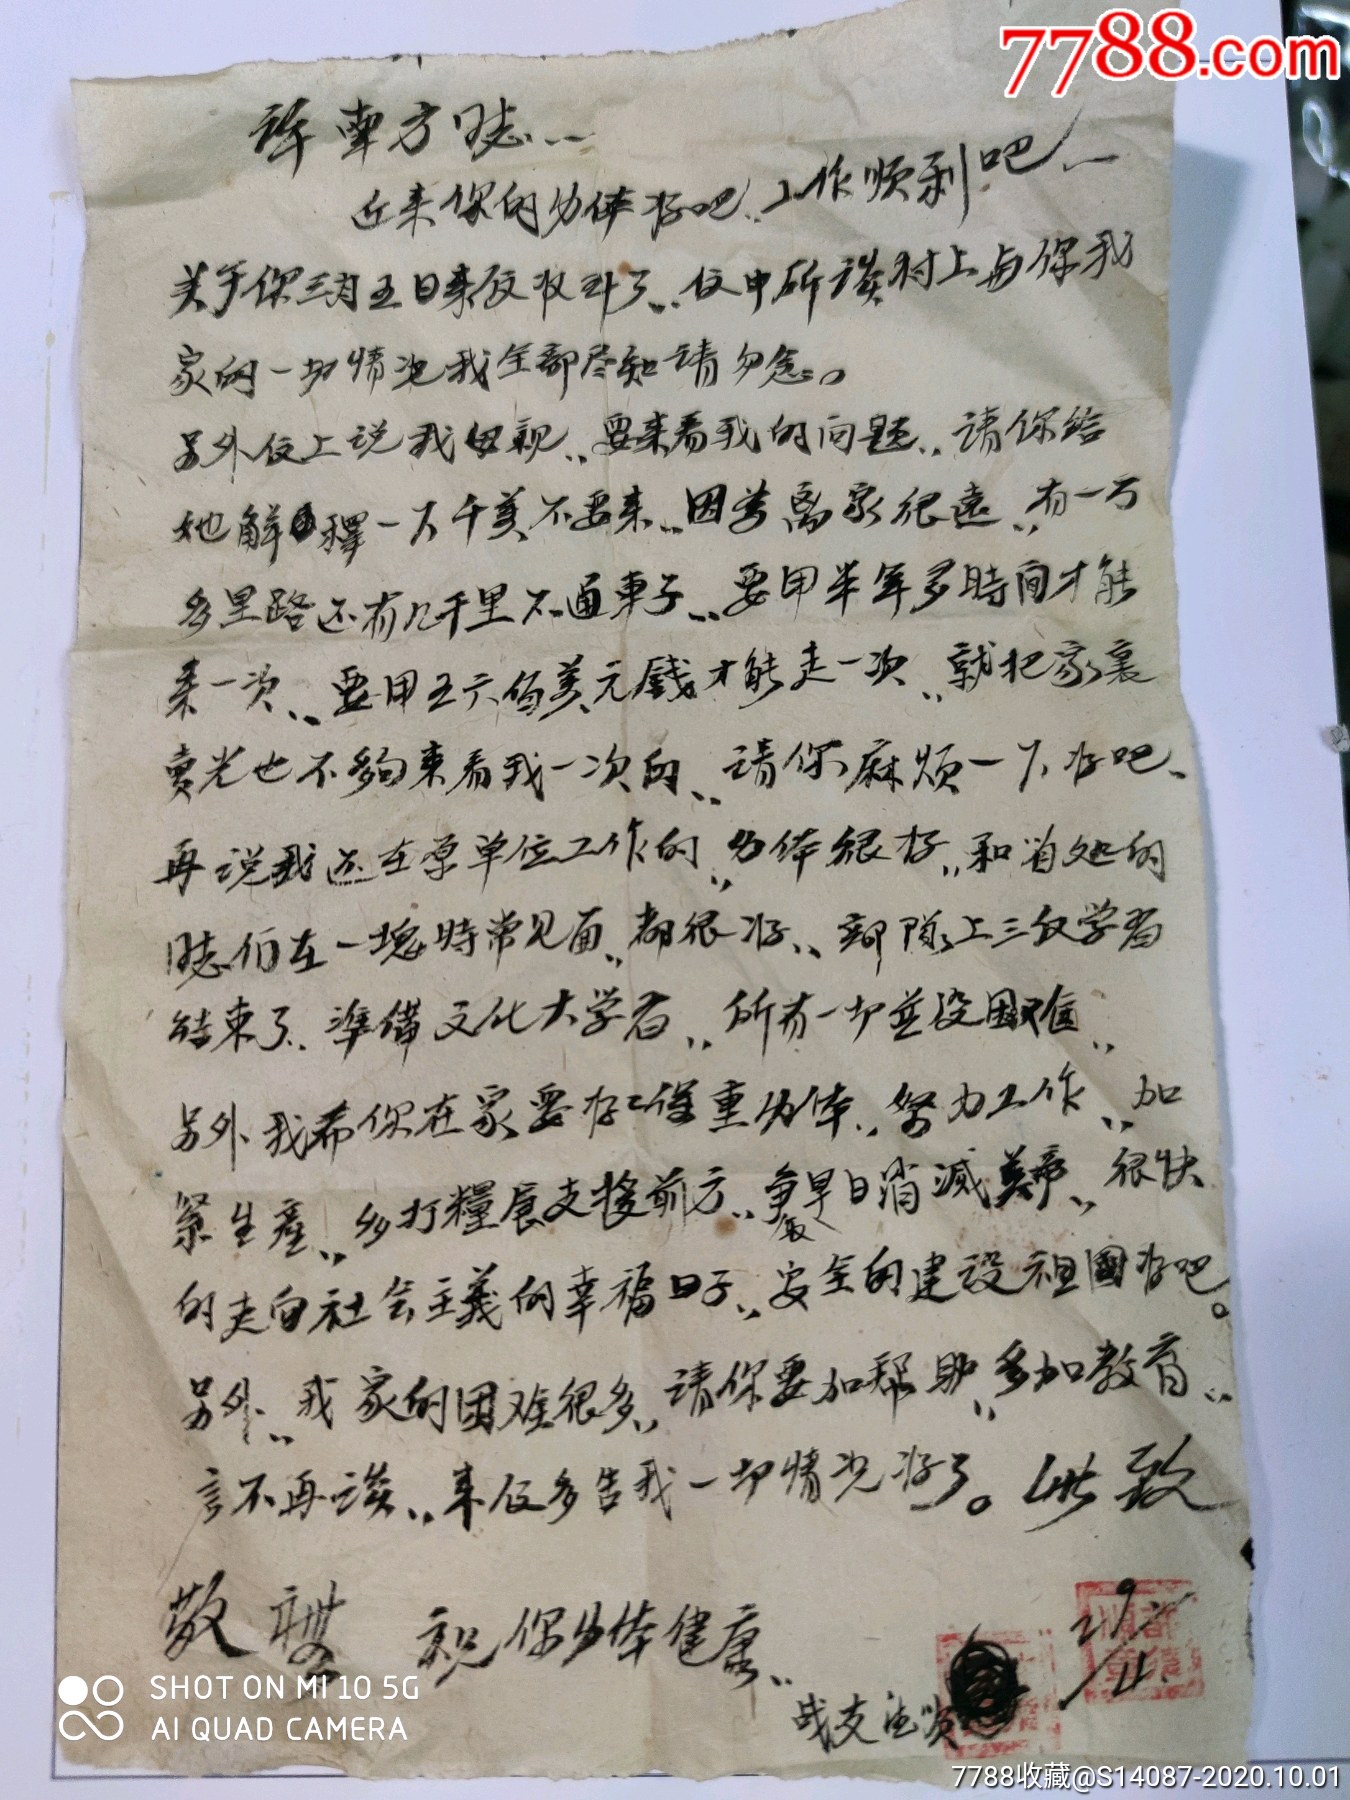 7788.com
许南方同志:—
近来你的身体好吧、工作顺利吧—
关于你三月五日来信收到了、信中所谈村上与你我
家的一切情况我全部尽知请勿念。
另外信上说我母亲、要来看我的问题、请你给
她解释一下千万不要来、因为离家很远、有一万
多里路还有几千里不通車子、要用半年多時间才能
来一次、要用五六佰美元錢才能走一次、就把家裏
卖光也不够来看我一次的、请你麻烦一下好吧、
再说我还在原单位工作的、身体很好、和省处的
同志们在一塊時常见面、都很好、部隊上三反学習
结束了、準備文化大学習、所有一切並没困难、
另外我希你在家要好好保重身体、努力工作、加
紧生産、多打糧食支援前方、争取早日消滅美帝、很快
的走向社会主義的幸福日子、安全的建设祖國好吧。
另外、我家的困难很多、请你要加帮助、多加教育、
言不再谈、来信多告我一切情况好了。此致
敬禮 祝你身体健康、
战友
SHOT ON MI 10 5G
AI QUAD CAMERA
7788收藏@S14087-2020.10.01